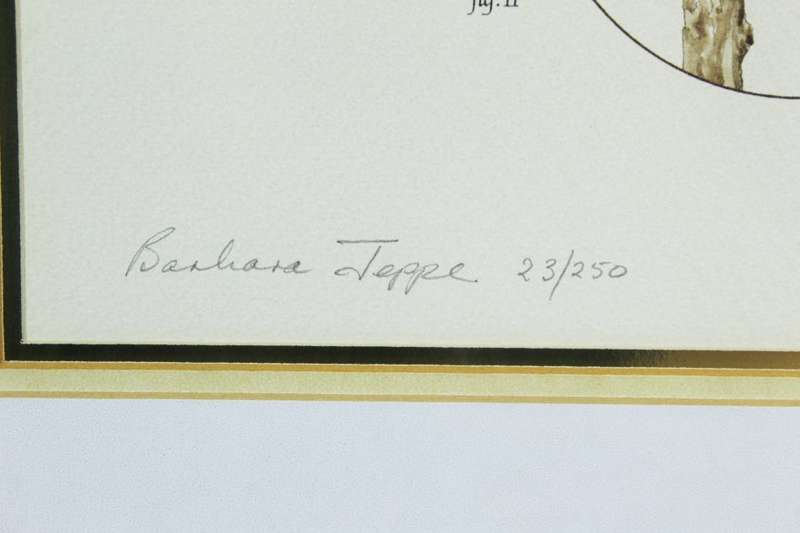 fig. II
Barbara Jeppe 23/250